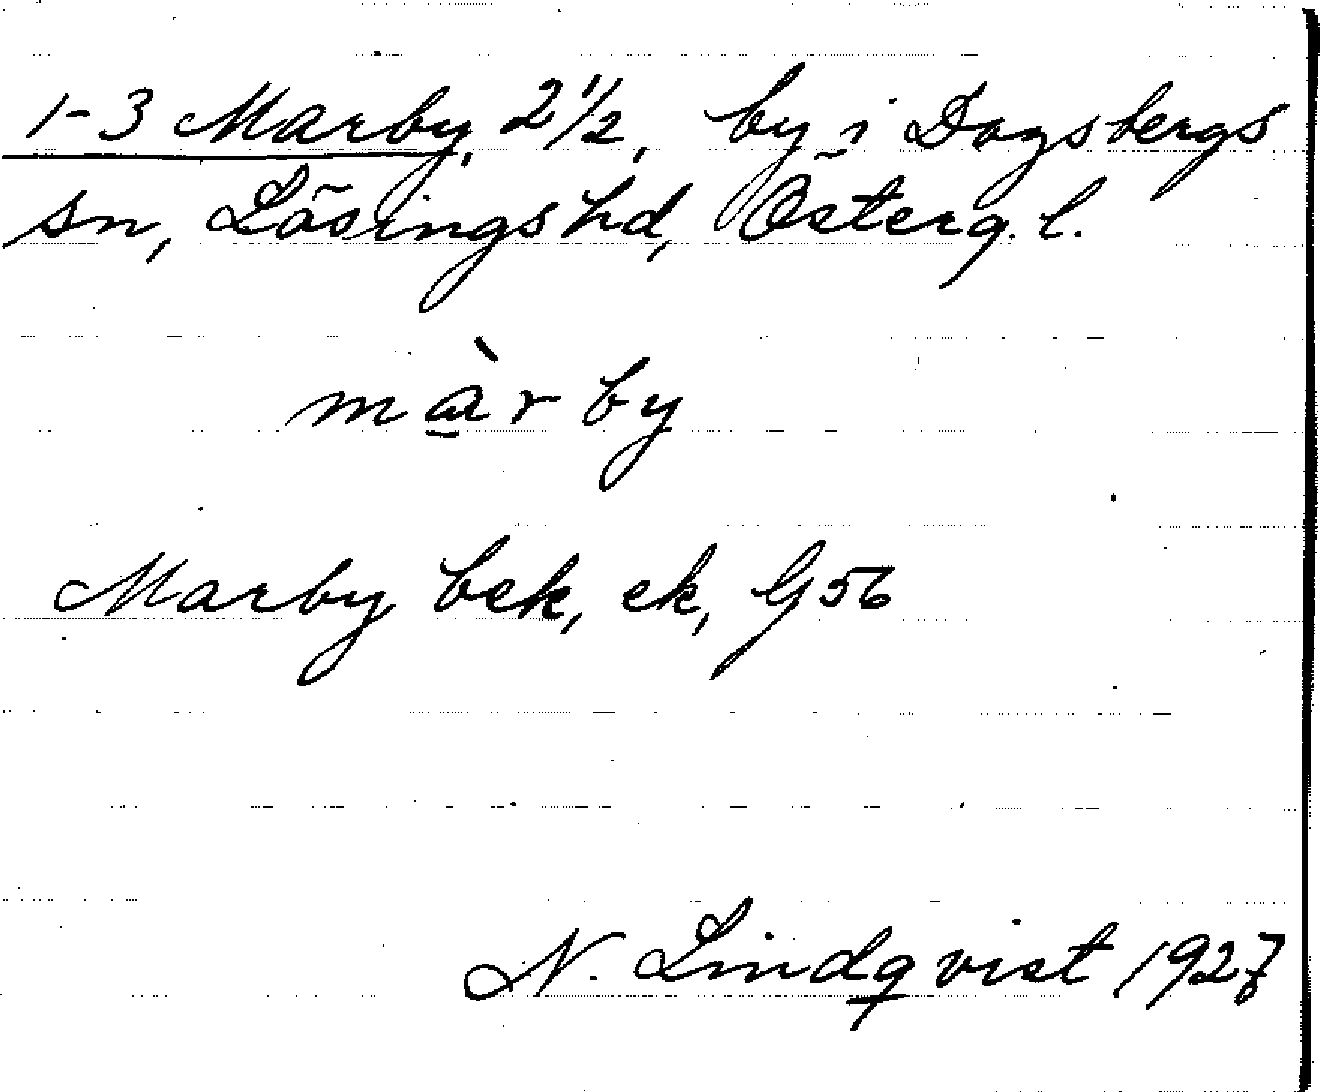 1-3 Marby, 2 1/2, by i Dagsbergs
sn, Lösings hd, Österg. l.
mà̱rby
Marby bek, ek, G56
N. Lindqvist 1927